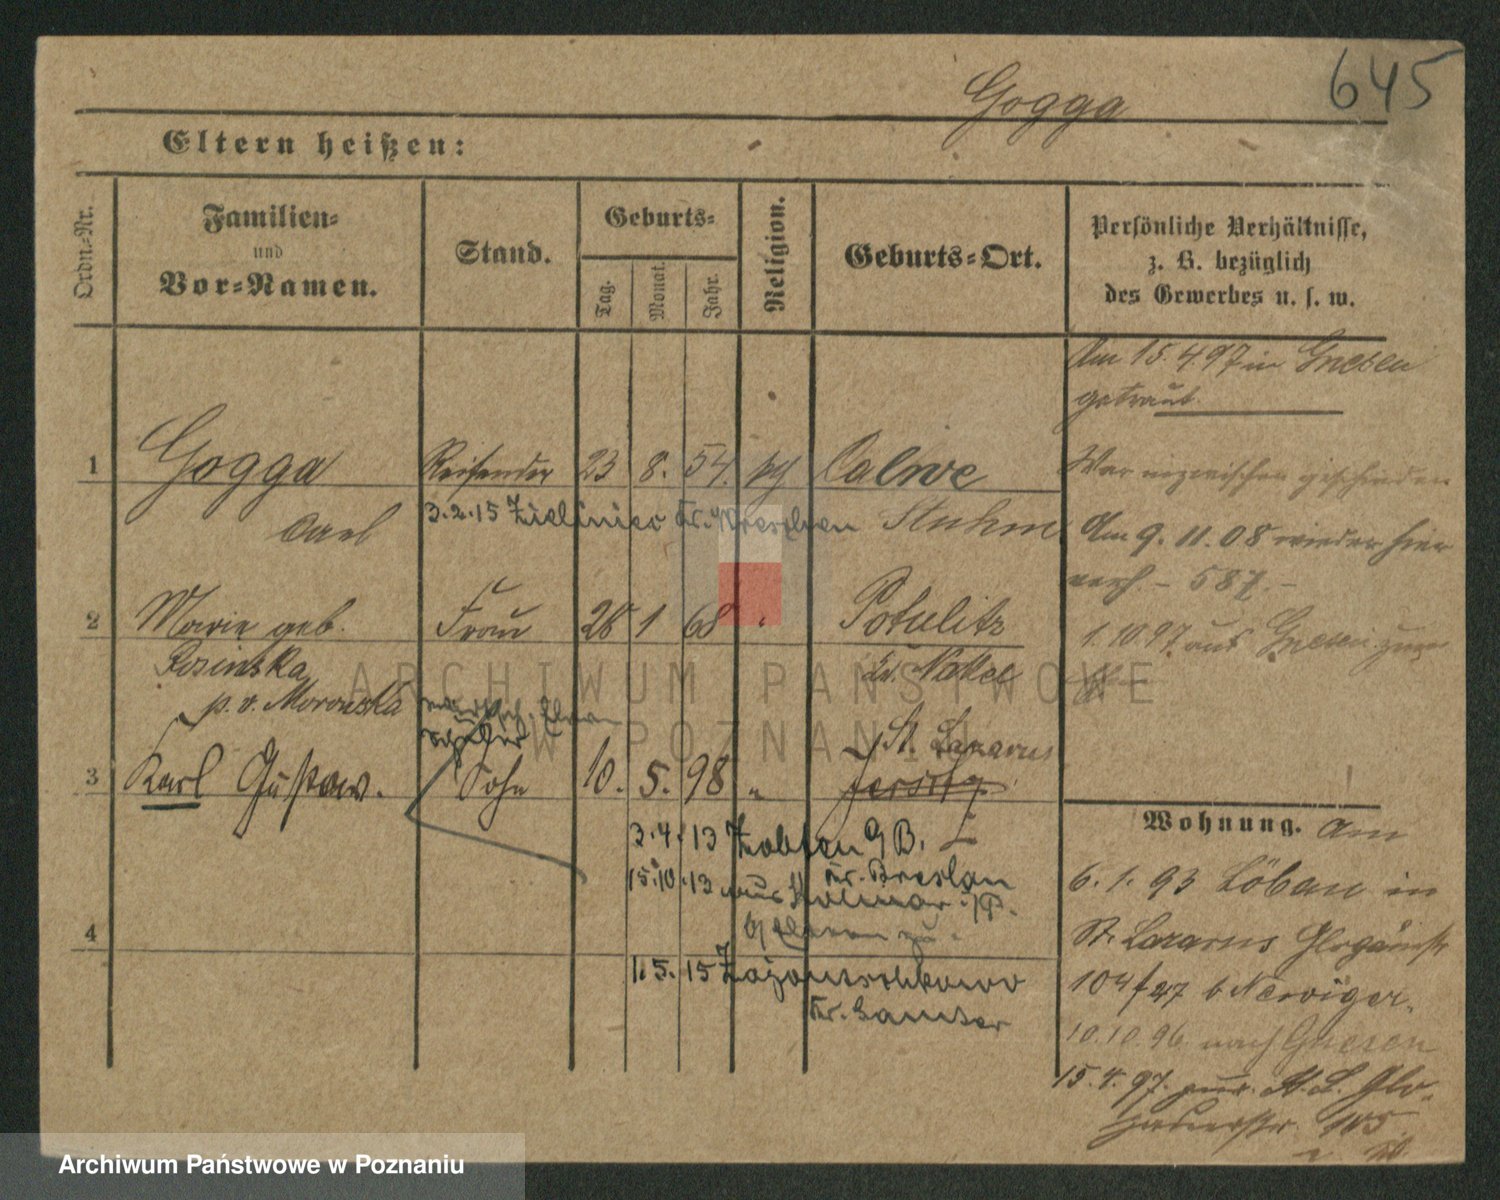 645
Gogga
Eltern heißen:
Ordn.-Nr.
Familien-
und
Vor-Namen.
Stand.
Geburts-
Tag.
Monat.
Jahr.
Religion.
Geburts-Ort.
Persönliche Verhältnisse,
z. B. bezüglich
des Gewerbes u. s. w.
Am 15.4.97 in Gnesen
getraut.
1 Gogga Reisender 23 8. 54. Calwe
Carl
3.2.15 Kr. Wreschen Stuhm
War inzwischen geschieden
Am 9. 11. 08 wieder hier
verh. - 587. -
2 Marie geb. Frau 28 1 68 " Potulitz
Rosinska
Kr. Nakel
1.10.97 aus Gnesen
3 Karl Gustaw. Sohn 10. 5. 98 " St. Lazarus
Jersitz
3.4.13 Zobten B.
Kr. Breslau
15.10.13 aus Kolmar i/P.
4
1.5.15
Kr. Samter
Wohnung. Am
6. 1. 93 Löbau in
St. Lazarus Glogauerstr
104/27 b
10.10.96 nach Gnesen
15.4.97. St. L. Glo-
gauerstr. 105
ARCHIWUM PAŃSTWOWE
W POZNANIU
Archiwum Państwowe w Poznaniu